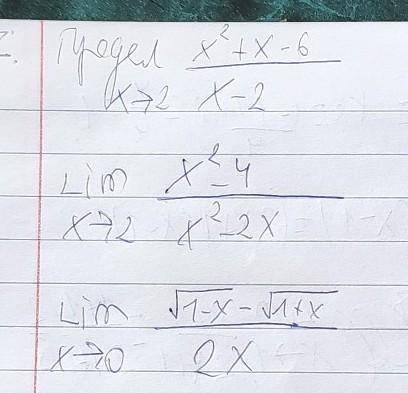 Предел x²+x-6
x→2 x-2
Lim x²-4
x→2 x²-2x
Lim √1-x - √1+x
x→0 2x